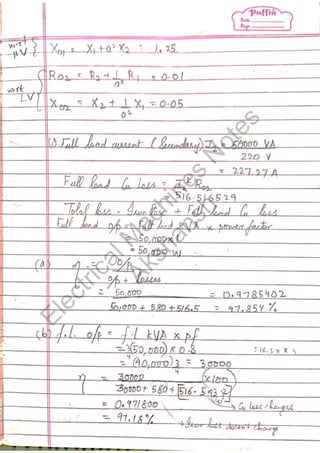 Puffin
Date
Page
w.r.t HV { X₀₁ = X₁ + a² X₂ = 1.25
wrt LV { R₀₂ = R₂ + 1/a² R₁ = 0.01
X₀₂ = X₂ + 1/a² X₁ = 0.05
(i) Full load current (Secondary) I₂ = 50000 VA
220 V
= 227.27 A
Full load Cu loss = I₂² R₀₂
= 516.516529
Total loss = Iron loss + Full load Cu loss
Full load o/p = Full load KVA x power factor
= 50,000 x 1
= 50,000 W
(a) η = o/p
o/p + losses
= 50,000 = 0.9785402
50,000 + 580 + 516.5 = 97.854 %
(b) f.l. o/p = f.l kVA x pf
516.5 x
= 30000
η = 30000 x100
30000 + 580 + 516.5
→ Cu loss changes
= 0.971800
= 97.18 % → Iron loss doesn't change
Electrical Machines Notes